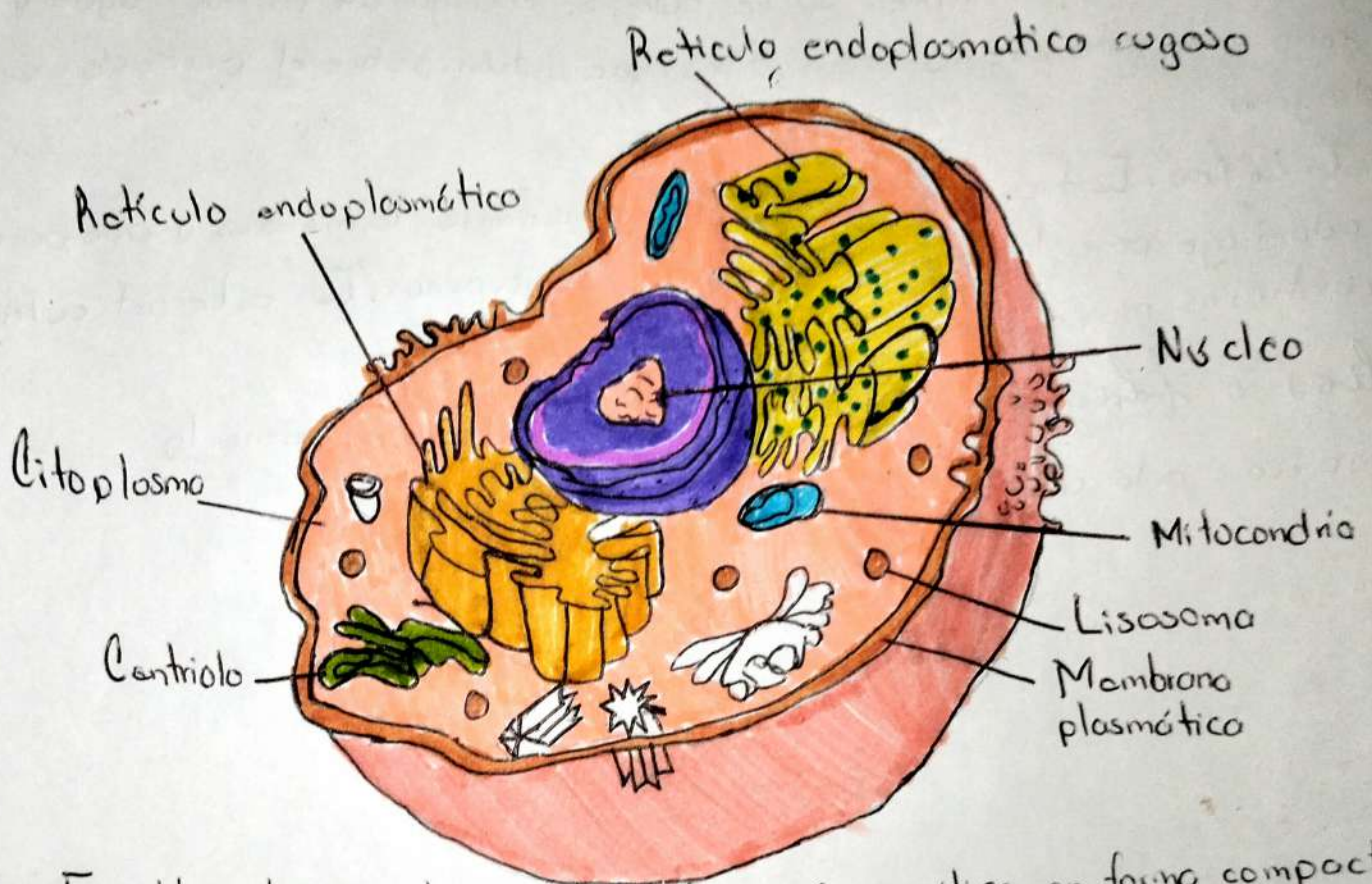 Reticulo endoplasmatico rugoso
Retículo endoplasmático
Núcleo
Citoplasma
Mitocondria
Lisosoma
Centriolo
Membrana
plasmática
en forma compact